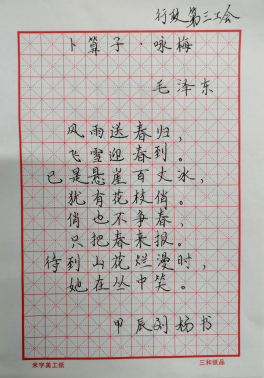 行政第三工会
卜算子·咏梅
毛泽东
风雨送春归，
飞雪迎春到。
已是悬崖百丈冰，
犹有花枝俏。
俏也不争春，
只把春来报。
待到山花烂漫时，
她在丛中笑。
甲辰刘杨书
米字美工纸
三和纸品